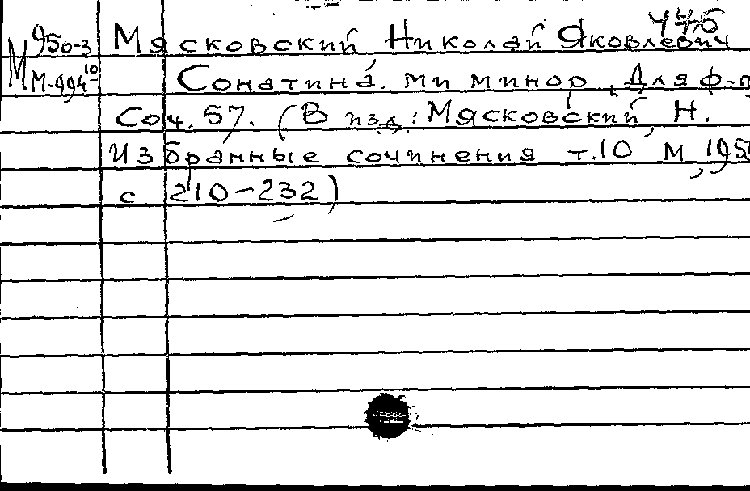 М 950-3 Мясковский Николай Яковлевич
М-994 10 Сонатина. ми минор. Для ф-п
Соч. 57. (В изд.: Мясковский, Н.
Избранные сочинения т.10 М, 195
с 210-232)